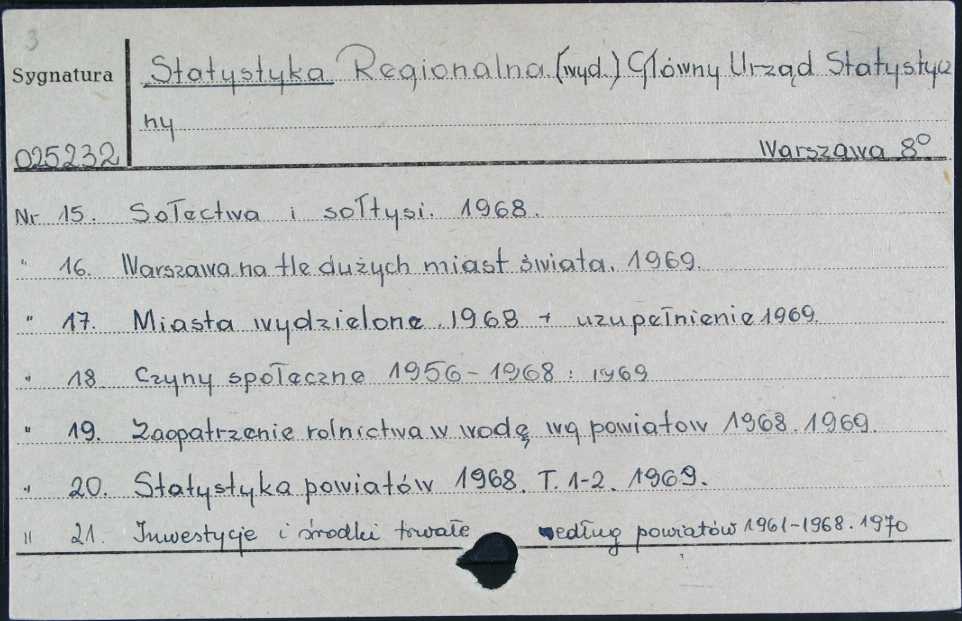 3
Sygnatura
Statystyka Regionalna (wyd.) Główny Urząd Statystycz
ny
025232
Warszawa 8°
Nr 15. Sołectwa i sołtysi. 1968.
" 16. Warszawa na tle dużych miast świata. 1969.
" 17. Miasta wydzielone. 1968 + uzupełnienie 1969.
" 18. Czyny społeczne 1956-1968: 1969
" 19. Zaopatrzenie rolnictwa w wodę wg powiatow 1968. 1969.
" 20. Statystyka powiatów 1968. T. 1-2. 1969.
" 21. Inwestycje i środki trwałe według powiatów 1961-1968. 1970